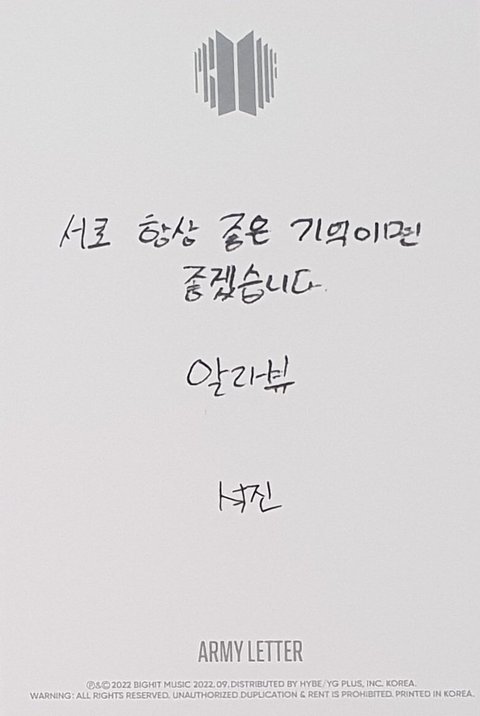 서로 항상 좋은 기억이면
좋겠습니다.
알라뷰
석진
ARMY LETTER
℗&© 2022 BIGHIT MUSIC 2022. 09. DISTRIBUTED BY HYBE/YG PLUS, INC. KOREA.
WARNING: ALL RIGHTS RESERVED. UNAUTHORIZED DUPLICATION & RENT IS PROHIBITED. PRINTED IN KOREA.